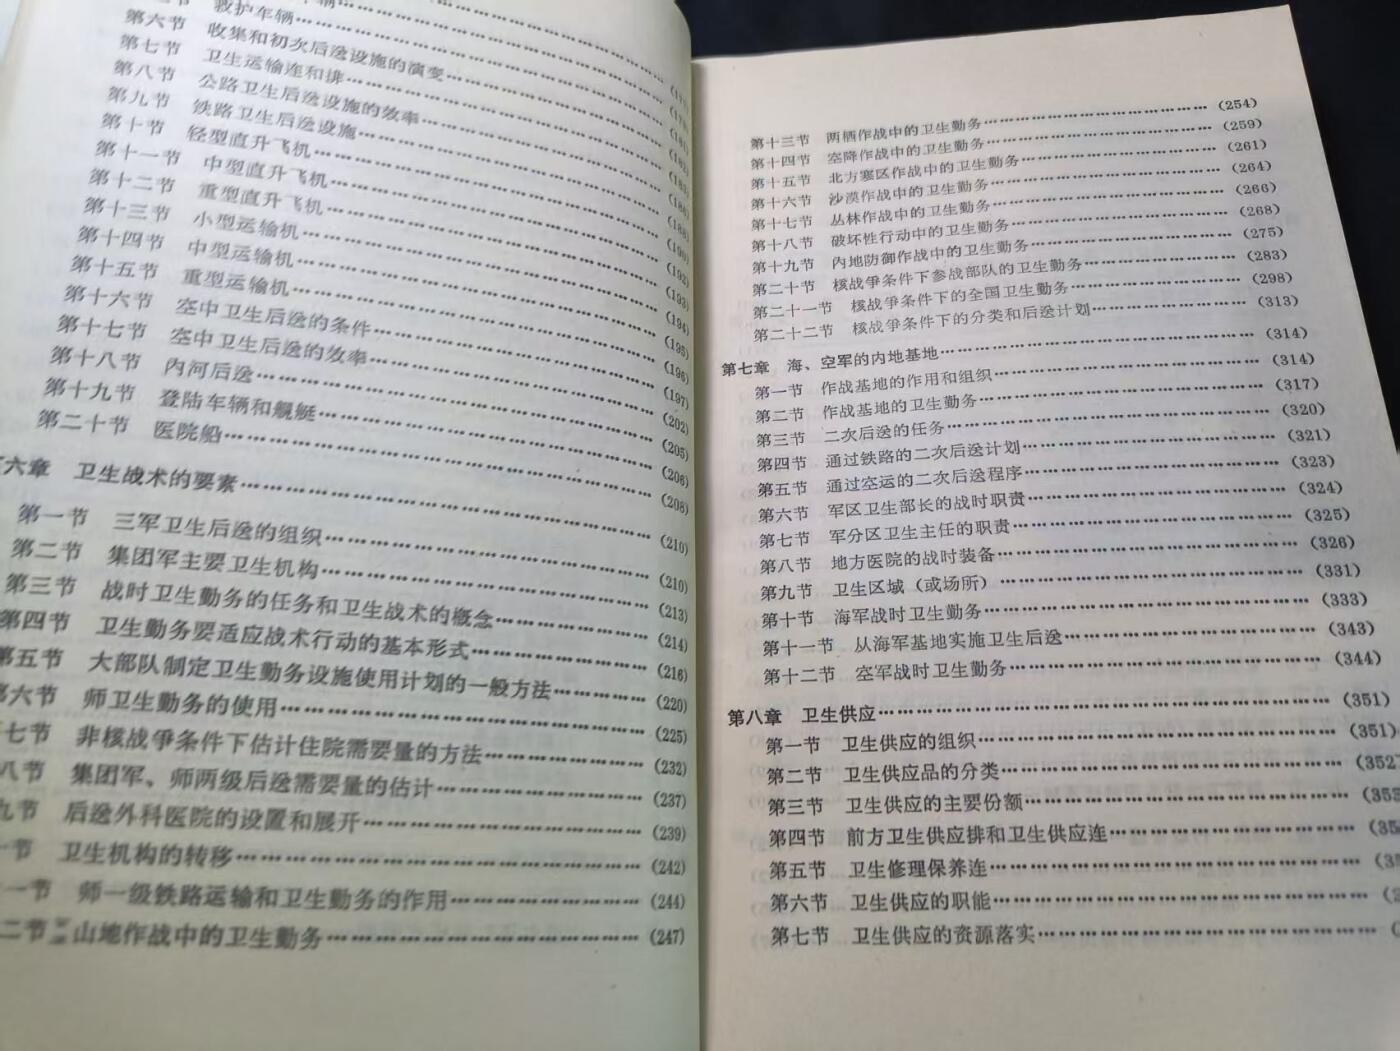 救护车辆
第六节 收集和初次后送设施的演变……(181)
第七节 卫生运输连和排……(182)
第八节 公路卫生后送设施的效率……(183)
第九节 铁路卫生后送设施……(188)
第十节 轻型直升飞机……(190)
第十一节 中型直升飞机……(192)
第十二节 重型直升飞机……(193)
第十三节 小型运输机……(194)
第十四节 中型运输机……(195)
第十五节 重型运输机……(196)
第十六节 空中卫生后送的条件……(197)
第十七节 空中卫生后送的效率……(202)
第十八节 内河后送……(205)
第十九节 登陆车辆和舰艇……(206)
第二十节 医院船……(208)
六章 卫生战术的要素……(210)
第一节 三军卫生后送的组织……(210)
第二节 集团军主要卫生机构……(213)
第三节 战时卫生勤务的任务和卫生战术的概念……(214)
第四节 卫生勤务要适应战术行动的基本形式……(216)
第五节 大部队制定卫生勤务设施使用计划的一般方法……(220)
第六节 师卫生勤务的使用……(225)
七节 非核战争条件下估计住院需要量的方法……(232)
八节 集团军、师两级后送需要量的估计……(237)
九节 后送外科医院的设置和展开……(239)
节 卫生机构的转移……(242)
一节 师一级铁路运输和卫生勤务的作用……(244)
二节 山地作战中的卫生勤务……(247)
第十三节 两栖作战中的卫生勤务……(254)
第十四节 空降作战中的卫生勤务……(259)
第十五节 北方寒区作战中的卫生勤务……(261)
第十六节 沙漠作战中的卫生勤务……(264)
第十七节 丛林作战中的卫生勤务……(266)
第十八节 破坏性行动中的卫生勤务……(268)
第十九节 内地防御作战中的卫生勤务……(275)
第二十节 核战争条件下参战部队的卫生勤务……(283)
第二十一节 核战争条件下的全国卫生勤务……(298)
第二十二节 核战争条件下的分类和后送计划……(313)
第七章 海、空军的内地基地……(314)
第一节 作战基地的作用和组织……(314)
第二节 作战基地的卫生勤务……(317)
第三节 二次后送的任务……(320)
第四节 通过铁路的二次后送计划……(321)
第五节 通过空运的二次后送程序……(323)
第六节 军区卫生部长的战时职责……(324)
第七节 军分区卫生主任的职责……(325)
第八节 地方医院的战时装备……(326)
第九节 卫生区域（或场所）……(331)
第十节 海军战时卫生勤务……(333)
第十一节 从海军基地实施卫生后送……(343)
第十二节 空军战时卫生勤务……(344)
第八章 卫生供应……(351)
第一节 卫生供应的组织……(351)
第二节 卫生供应品的分类……(352
第三节 卫生供应的主要份额……(353
第四节 前方卫生供应排和卫生供应连……(35
第五节 卫生修理保养连……(35
第六节 卫生供应的职能……(3
第七节 卫生供应的资源落实……(